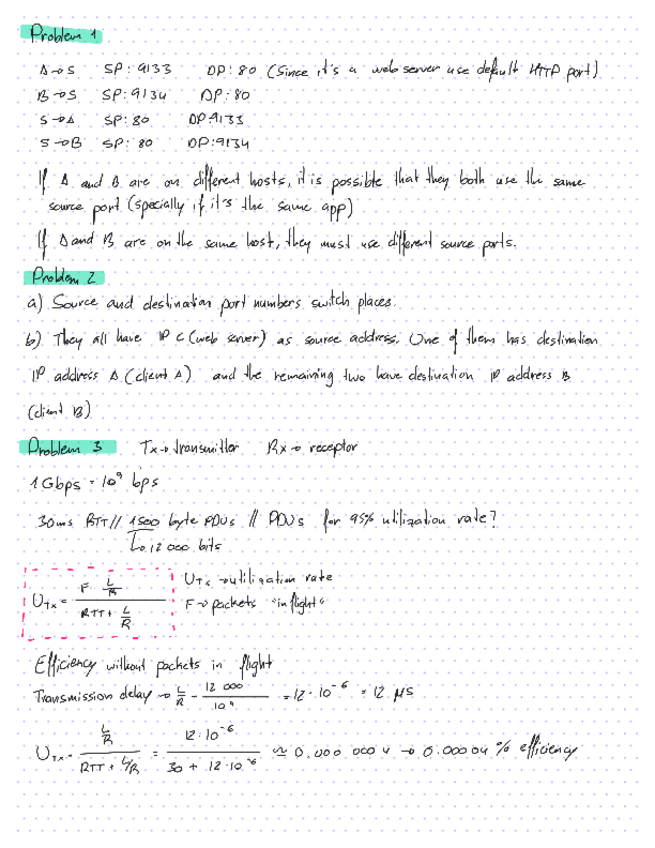 Problem 1
A→S SP: 9133 DP: 80 (Since it's a web server use default HTTP port)
B→S SP: 9134 DP: 80
S→A SP: 80 DP: 9133
S→B SP: 80 DP: 9134
If A and B are on different hosts, it is possible that they both use the same
source port (specially if it's the same app)
If A and B are on the same host, they must use different source ports.
Problem 2
a) Source and destination port numbers switch places.
b) They all have IP C (web server) as source address. One of them has destination
IP address A (client A) and the remaining two have destination IP address B
(client B)
Problem 3 Tx→transmitter Rx→receptor
1 Gbps = 10⁹ bps
30ms RTT // 1500 byte PDUs // PDUs for 95% utilization rate?
↳ 12 000 bits
U_Tx = (F · L/R) / (RTT + L/R)
U_Tx → utilization rate
F → packets "in flight"
Efficiency without packets in flight
Transmission delay → L/R = 12 000 / 10⁹ = 12 · 10⁻⁶ = 12 µs
U_Tx = (L/R) / (RTT + L/R) = (12 · 10⁻⁶) / (30 + 12 · 10⁻⁶) ≃ 0.000 000 4 → 0.000 04 % efficiency